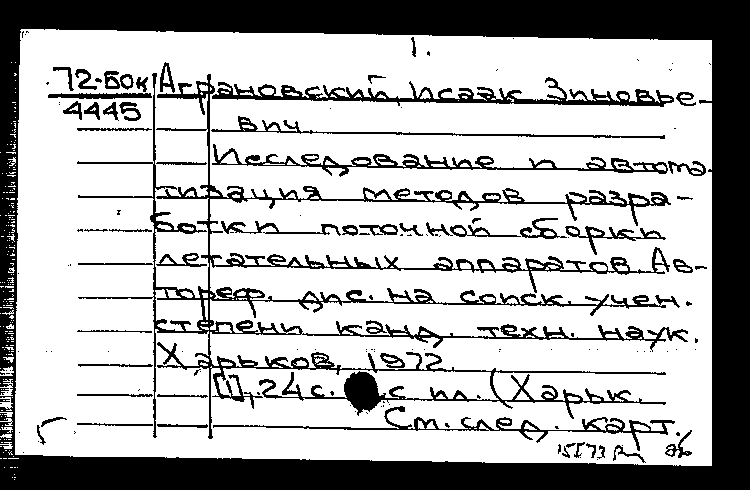 1.
72-БОК Аграновский, Исаак Зиновье-
4445
вич.
Исследование и автома-
тизация методов разра-
ботки поточной сборки
летательных аппаратов. Ав-
тореф. дис. на соиск. учен.
степени канд. техн. наук.
Харьков, 1972.
[1], 24 с. с ил. (Харьк.
См. след. карт.